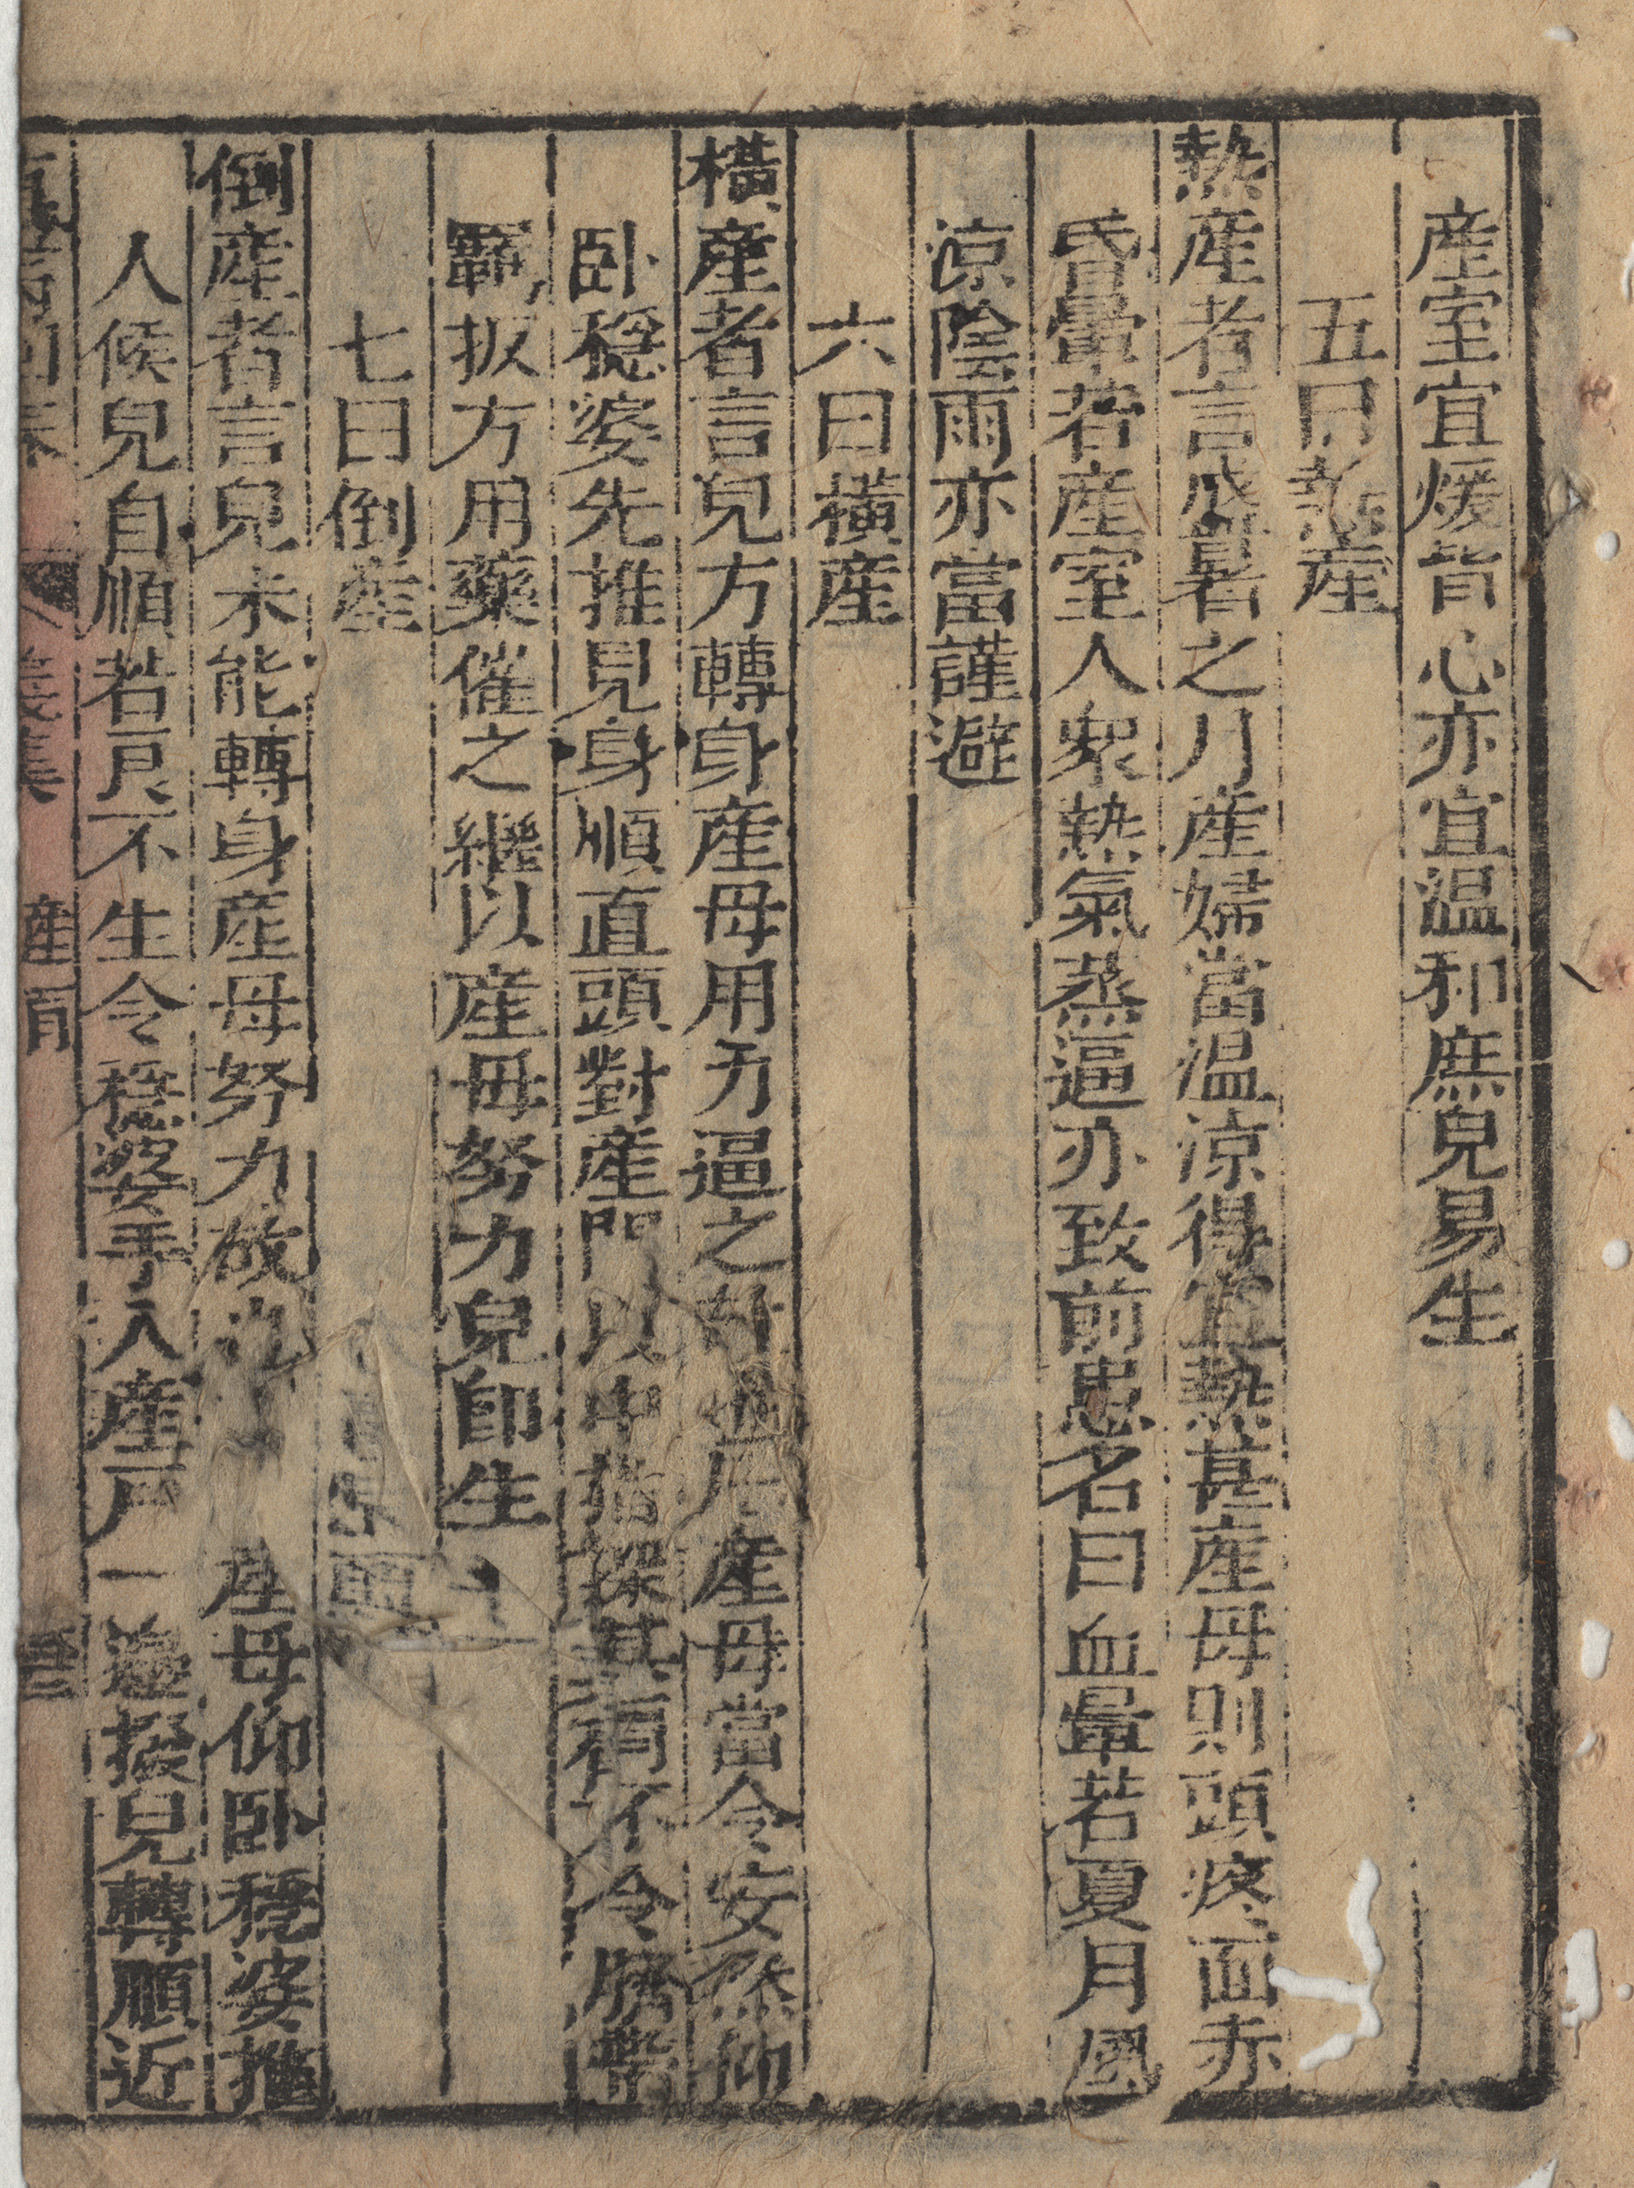 産室宜煖背心亦宜温和庶兒易生
五曰熱産
熱産者言盛暑之月産婦當温凉得宜熱甚産母則頭疼面赤
昏暈若産室人衆熱氣蒸逼亦致前患名曰血暈若夏月風
凉陰雨亦當謹避
六曰橫産
橫産者言兒方轉身産母用力逼之故也凡産母當令安然仰
卧穏婆先推兒身順直頭對産門以中指探其肩不令臍帶
羈扳方用藥催之繼以産母努力兒即生
七曰倒産
倒産者言兒未能轉身産母努力故也 産母仰卧穏婆推
人候兒自順若良不生令穏婆手入産戸一邉撥兒轉順近
産育